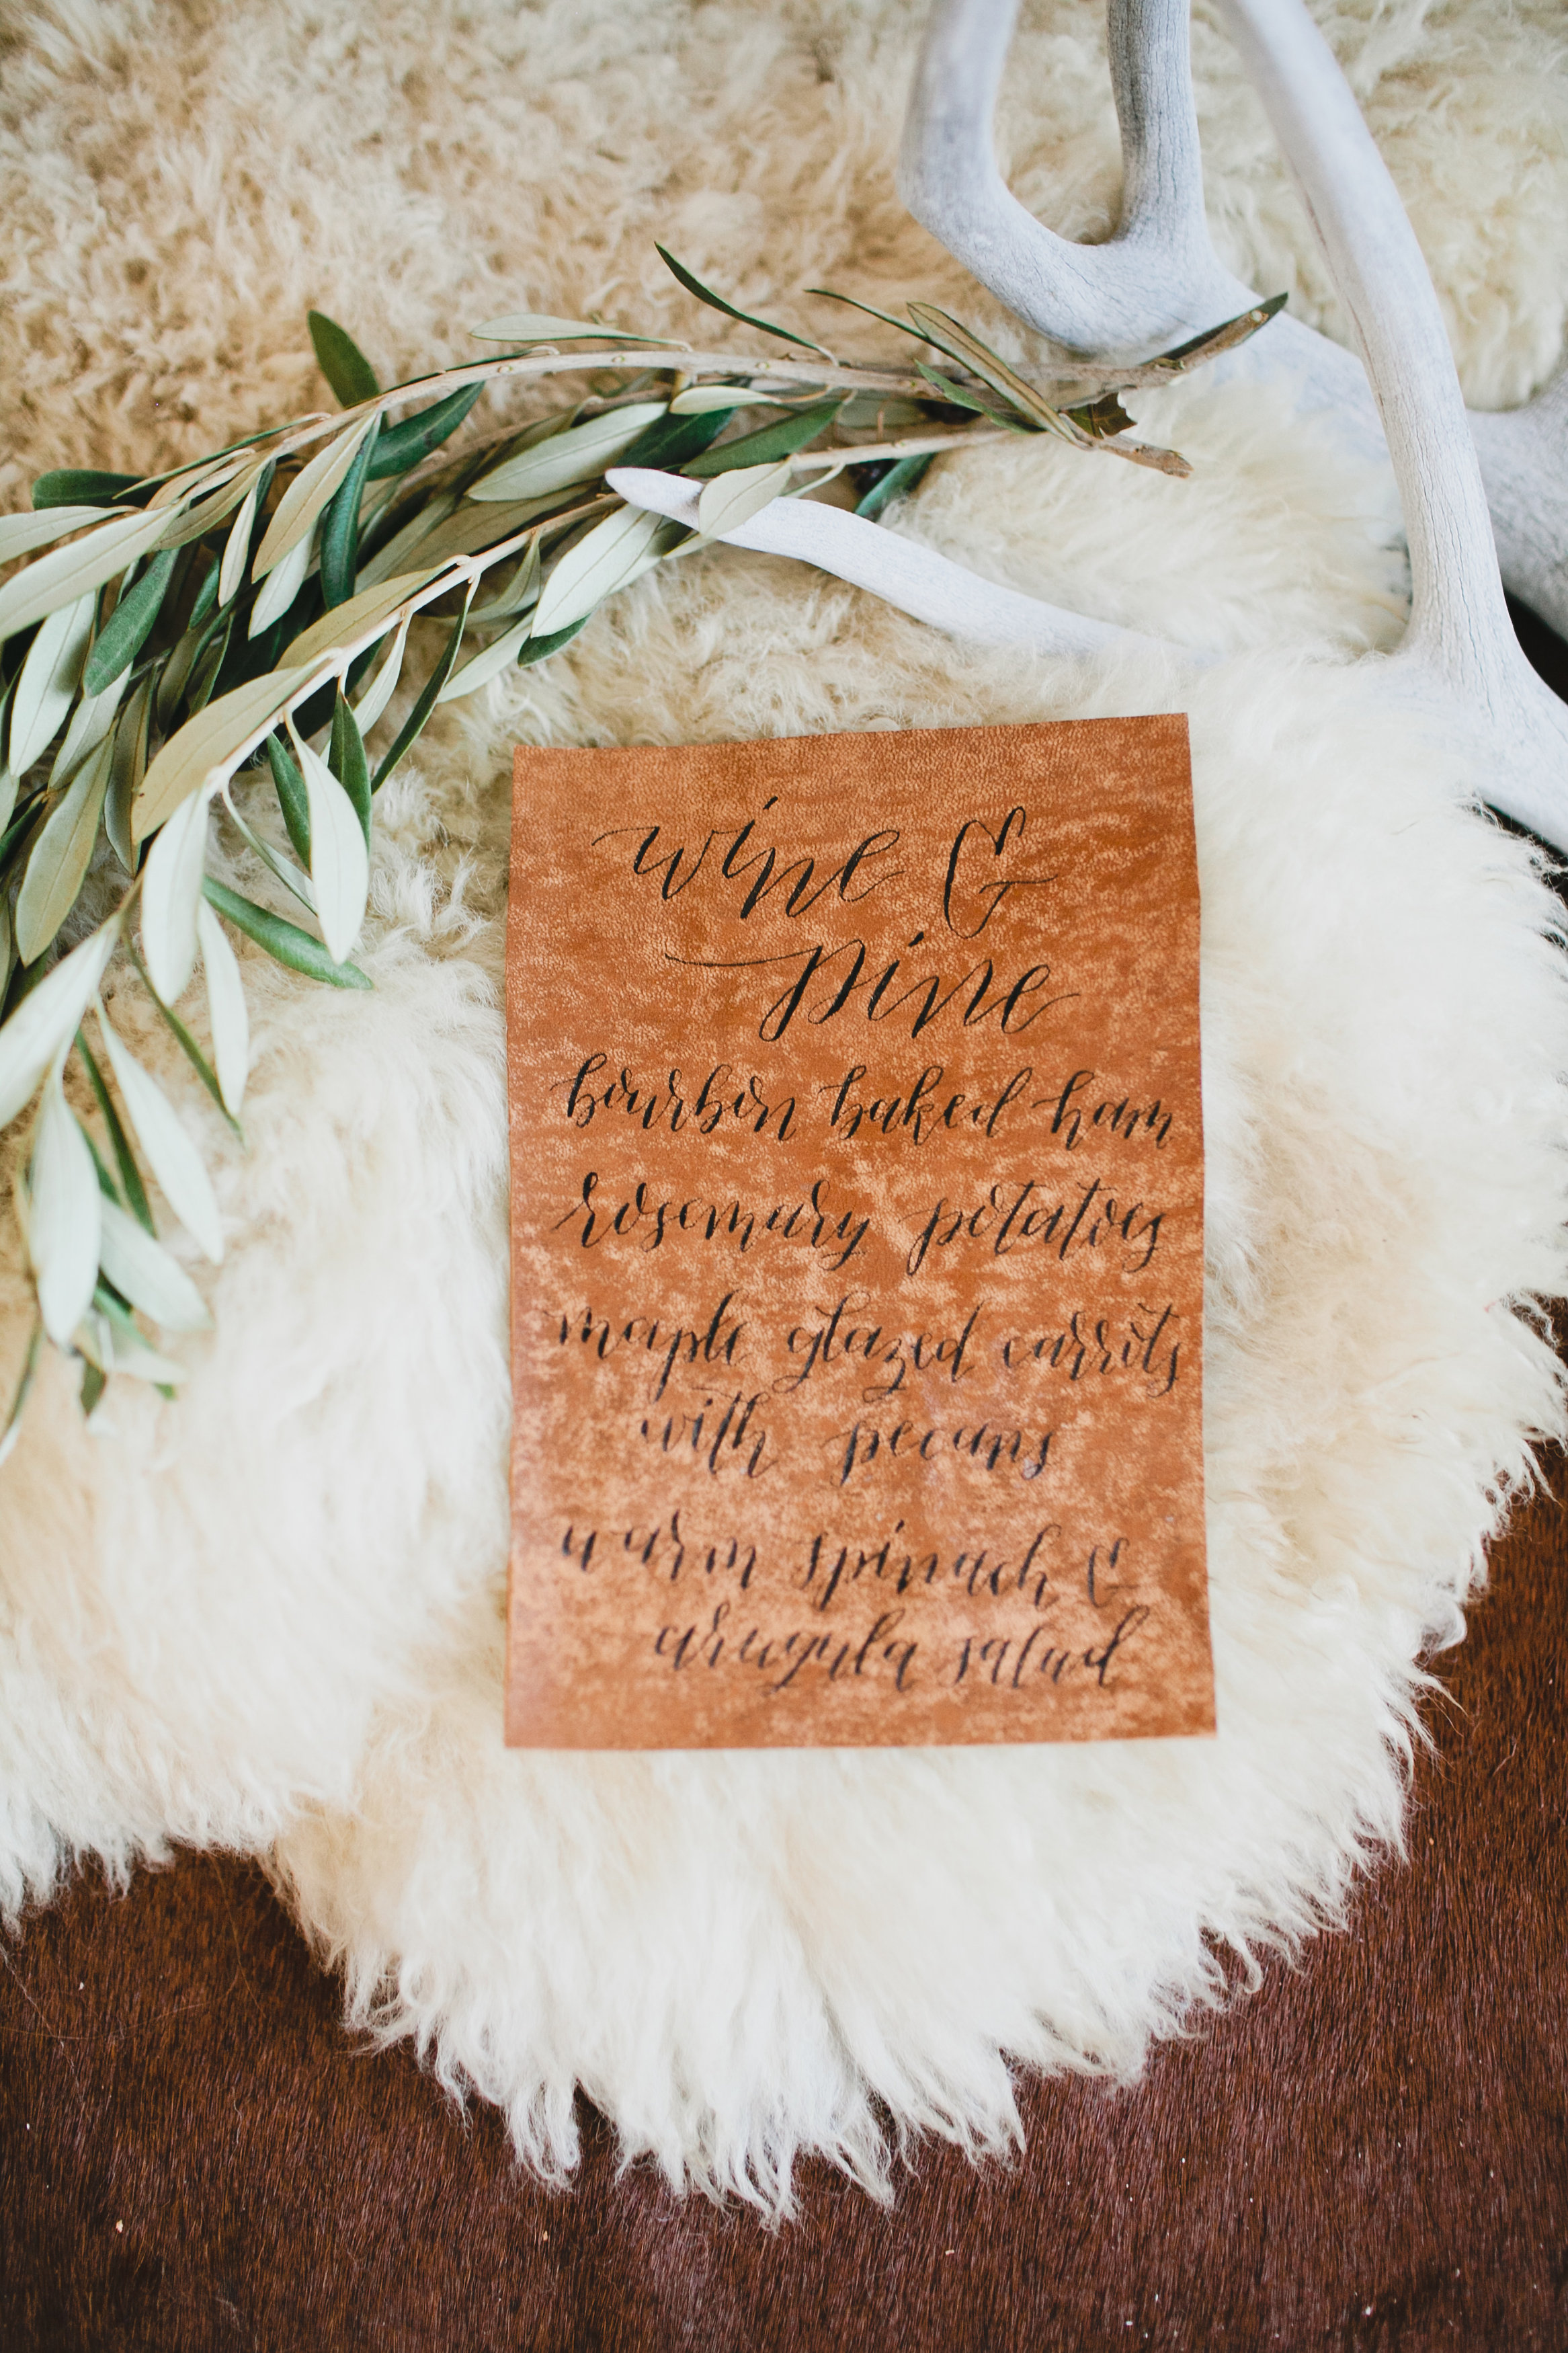 wine &
pine
bourbon baked ham
rosemary potatoes
maple glazed carrots
with pecans
warm spinach &
arugula salad